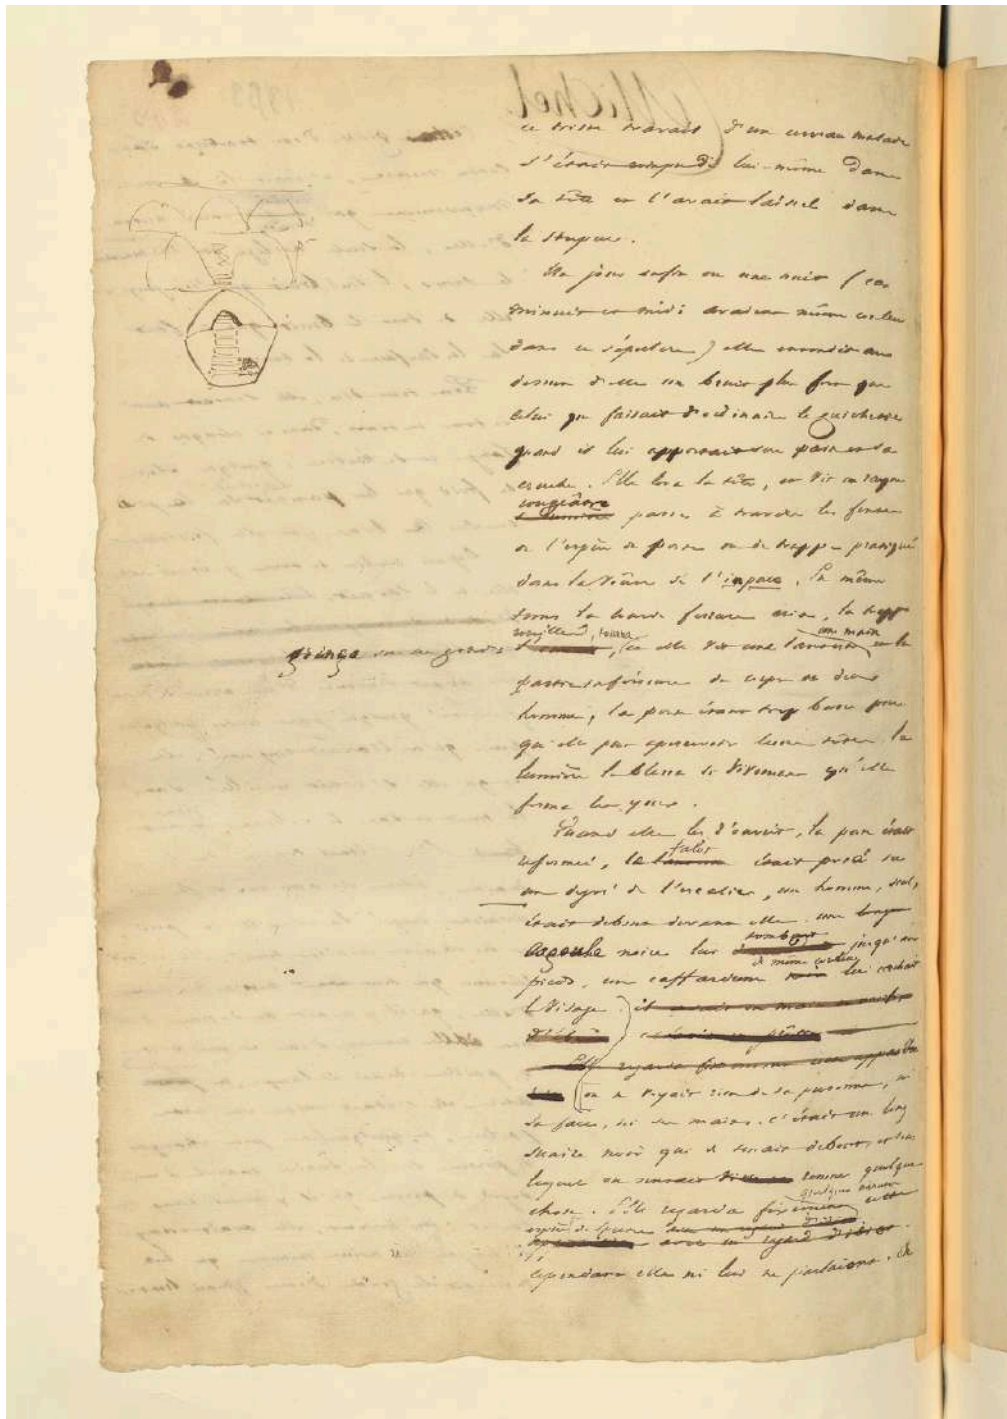 ce triste travail d'un cerveau malade
s'était rompu de lui-même dans
sa tête et l'avait laissée dans
la stupeur.
Un jour enfin ou une nuit (car
minuit et midi avaient même couleur
dans ce sépulcre) elle entendit au
dessus d'elle un bruit plus fort que
celui que faisait d'ordinaire le guichetier
quand il lui apportait son pain et sa
cruche. Elle leva la tête, et vit un rayon
rougeâtre
de lumière passer à travers les fentes
de l'espèce de porte ou de trappe pratiquée
dans la voûte de l'inpace. En même
temps la lourde ferrure cria, la trappe
grinça sur ses gonds rouillés, tourna, et elle vit une lanterne, une main et la
partie inférieure du corps de deux
hommes, la porte étant trop basse pour
qu'elle pût apercevoir leurs têtes. La
lumière la blessa si vivement qu'elle
ferma les yeux.
Quand elle les rouvrit, la porte était
refermée, le falot était posé sur
un degré de l'escalier, un homme, seul,
était debout devant elle. une longue
cagoule noire lui tombait jusqu'aux
pieds, un caffardum de même couleur lui cachait
le visage.
on ne voyait rien de sa personne, ni
sa face, ni ses mains. c'était un long
suaire noir qui se tenait debout, et sous
lequel on sentait remuer quelque
chose. Elle regarda fixement quelques minutes cette
espèce de spectre
cependant elle ni lui ne parlaient.